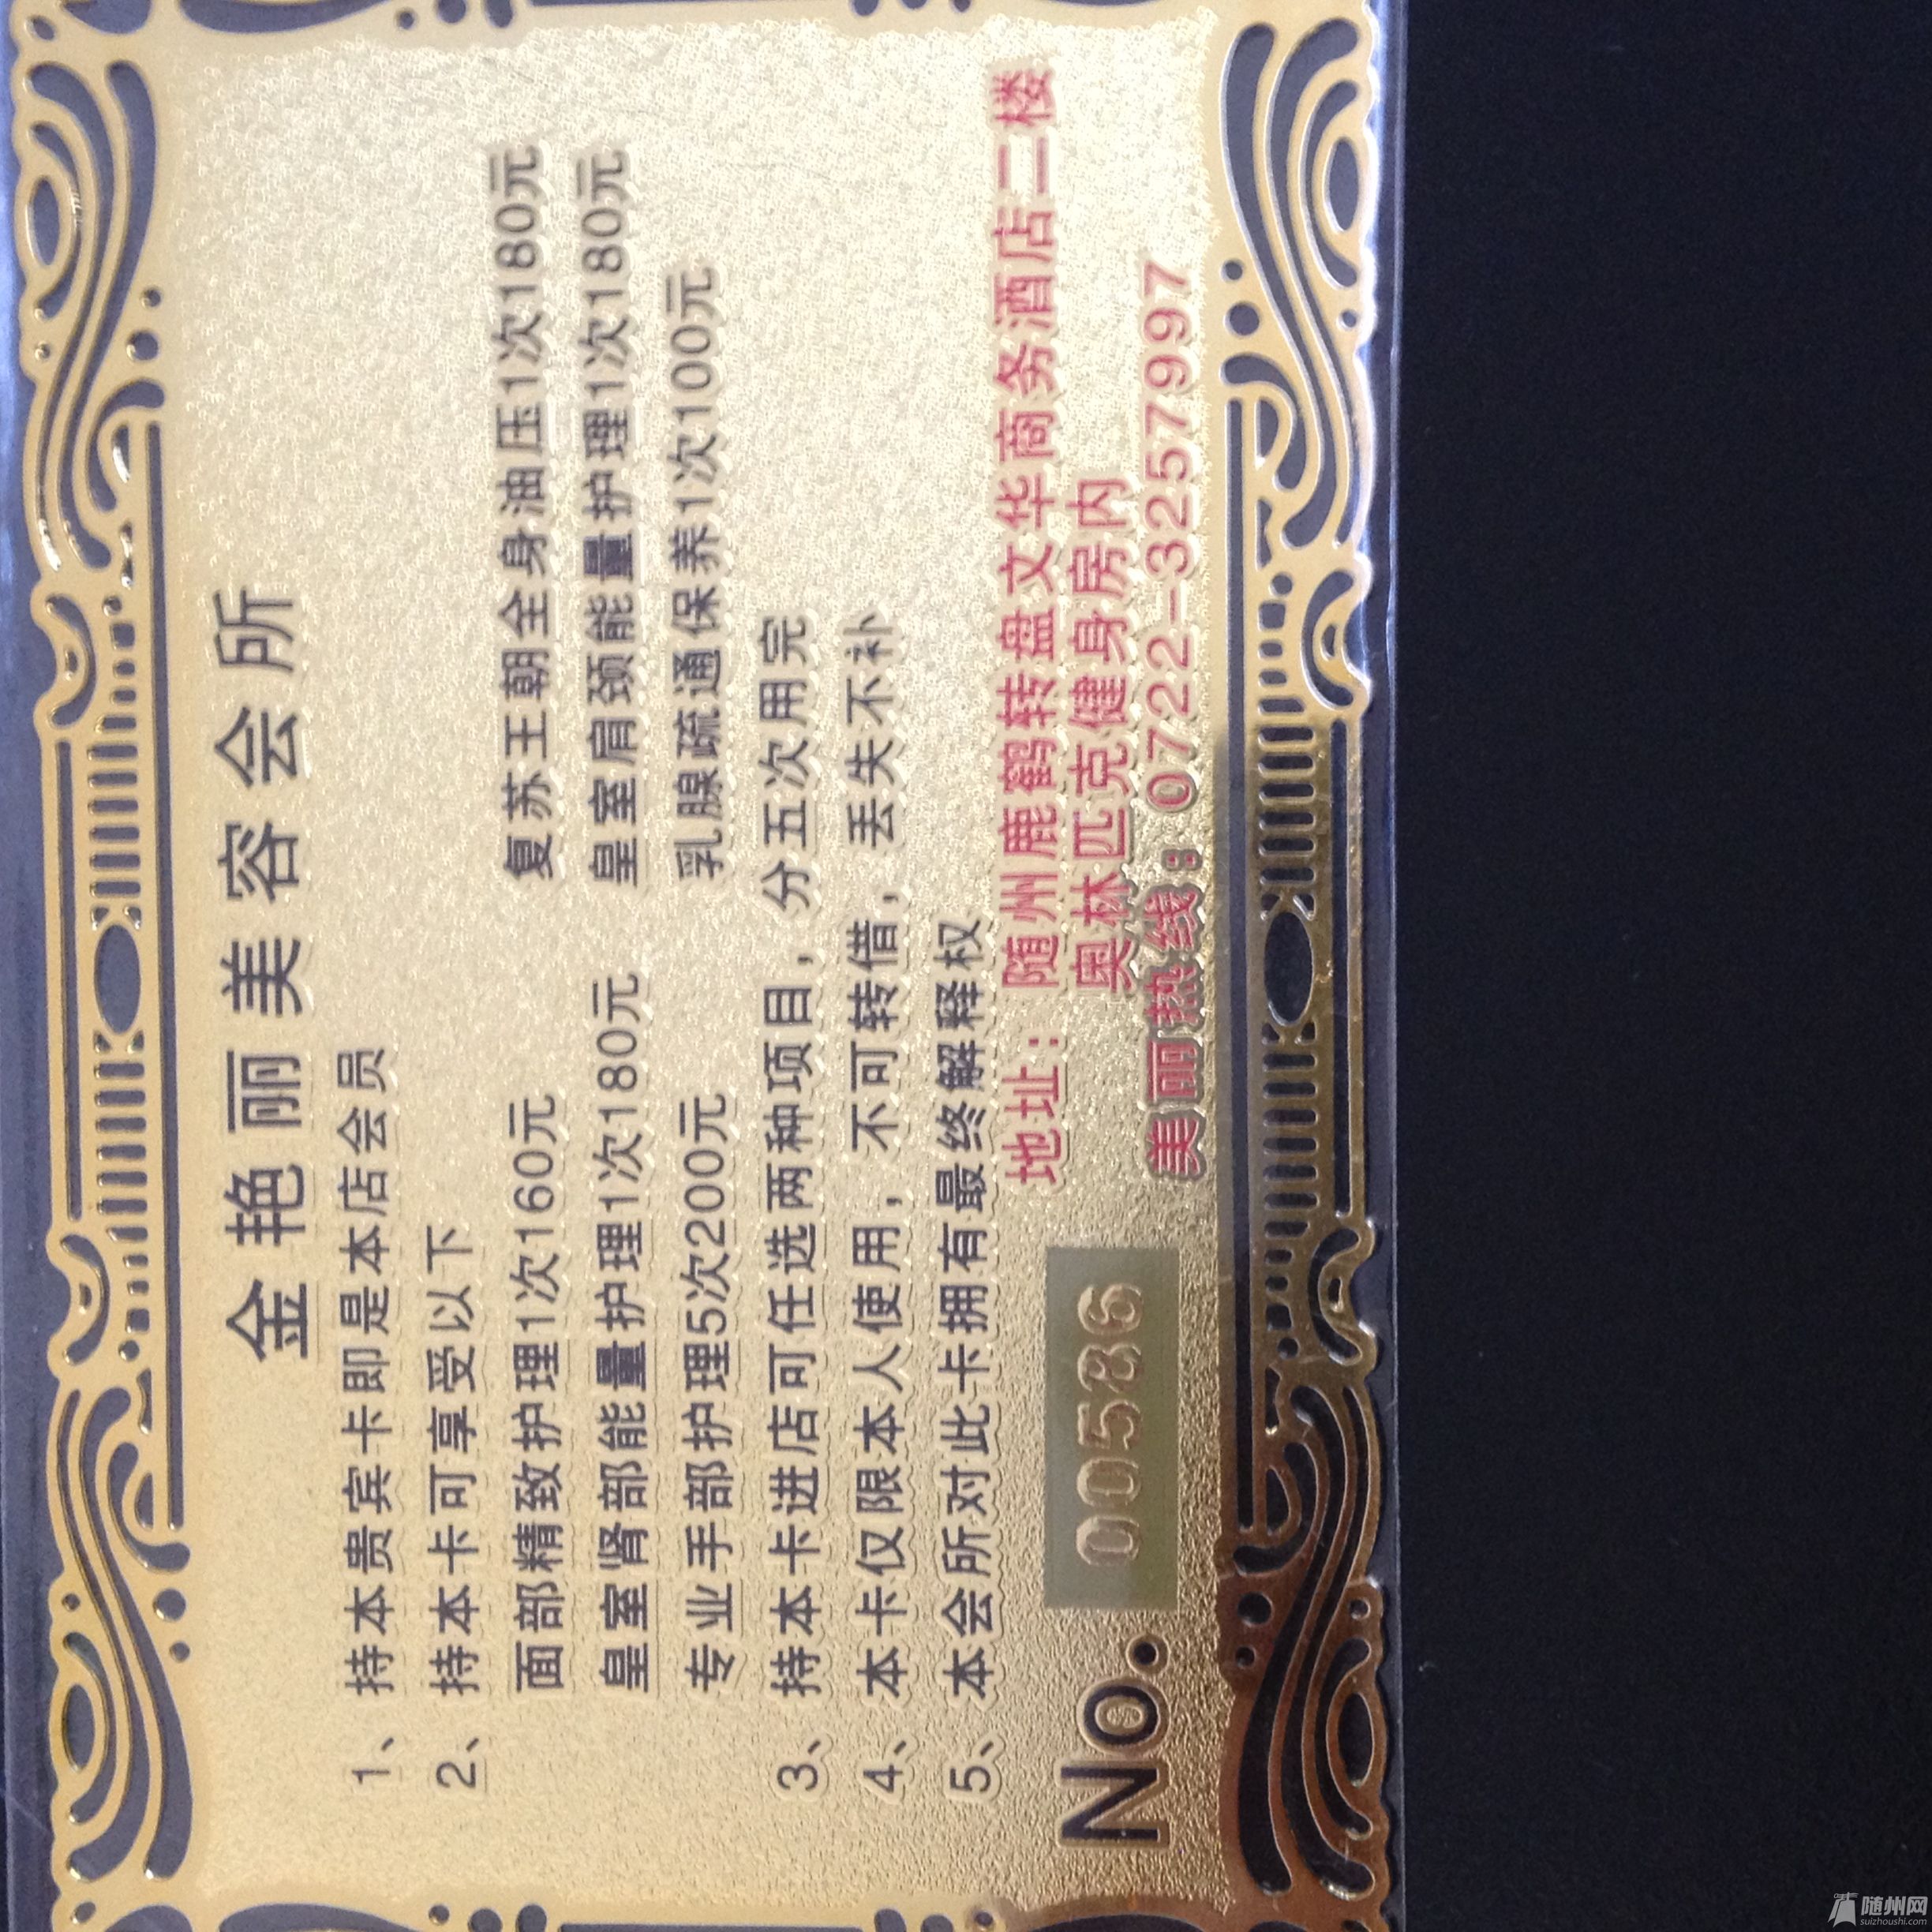 金艳丽美容会所
1、持本贵宾卡即是本店会员
2、持本卡可享受以下
面部精致护理1次160元 复苏王朝全身油压1次180元
皇室肾部能量护理1次180元 皇室肩颈能量护理1次180元
专业手部护理5次200元 乳腺疏通保养1次100元
3、持本卡进店可任选两种项目，分五次用完
4、本卡仅限本人使用，不可转借，丢失不补
5、本会所对此卡拥有最终解释权
地址：随州鹿鹤转盘文华商务酒店二楼
奥林匹克健身房内
美丽热线：0722-3257997
No. 00586
随州网
suizhoushi.com